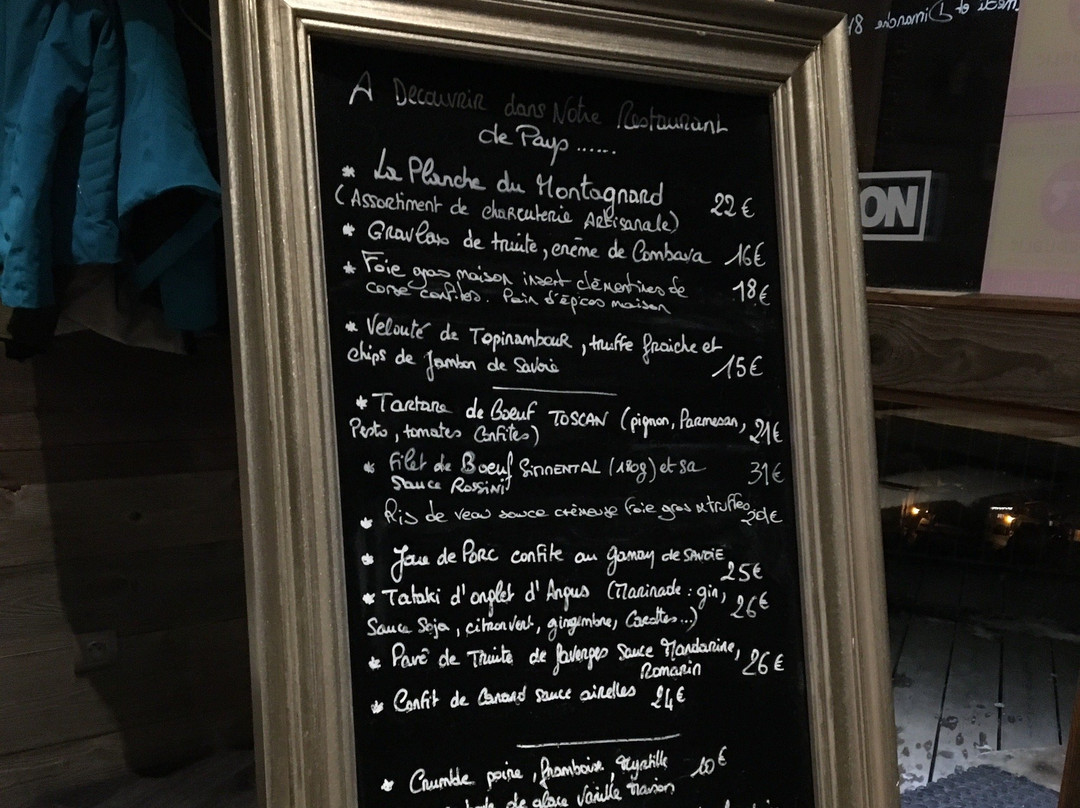 A Decouvrir dans Notre Restaurant
de Pays ......
* La Planche du Montagnard 22€
(Assortiment de charcuterie Artisanale)
* Gravlax de truite, crème de Combava 16€
* Foie gras maison insert clémentines de 18€
corse confites. Pain d'épices maison
* Velouté de Topinambour, truffe fraiche et
chips de Jambon de Savoie 15€
* Tartare de Boeuf TOSCAN (pignon, Parmesan, 21€
Pesto, tomates Confites)
* Filet de Boeuf SIMMENTAL (180g) et sa 31€
Sauce Rossini
* Ris de veau sauce crèmeuse foie gras et truffes
* Joue de Porc confite au gamay de SAVOIE
25€
* Tataki d'onglet d'Angus (Marinade : gin, 26€
Sauce Soja, citron vert, gingimbre, Carottes...)
* Pavé de Truite de faverges Sauce Mandarine, 26€
Romarin
* Confit de Canard sauce airelles 24€
* Crumble poire, framboise, Myrtille 10€
de glace Vanille Maison
Dimanche
ON